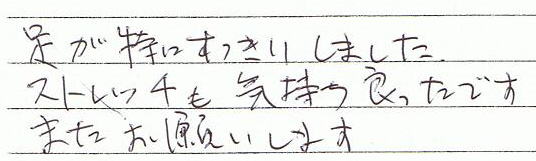 足が特にすっきりしました
ストレッチも気持ち良ったです
またお願いします